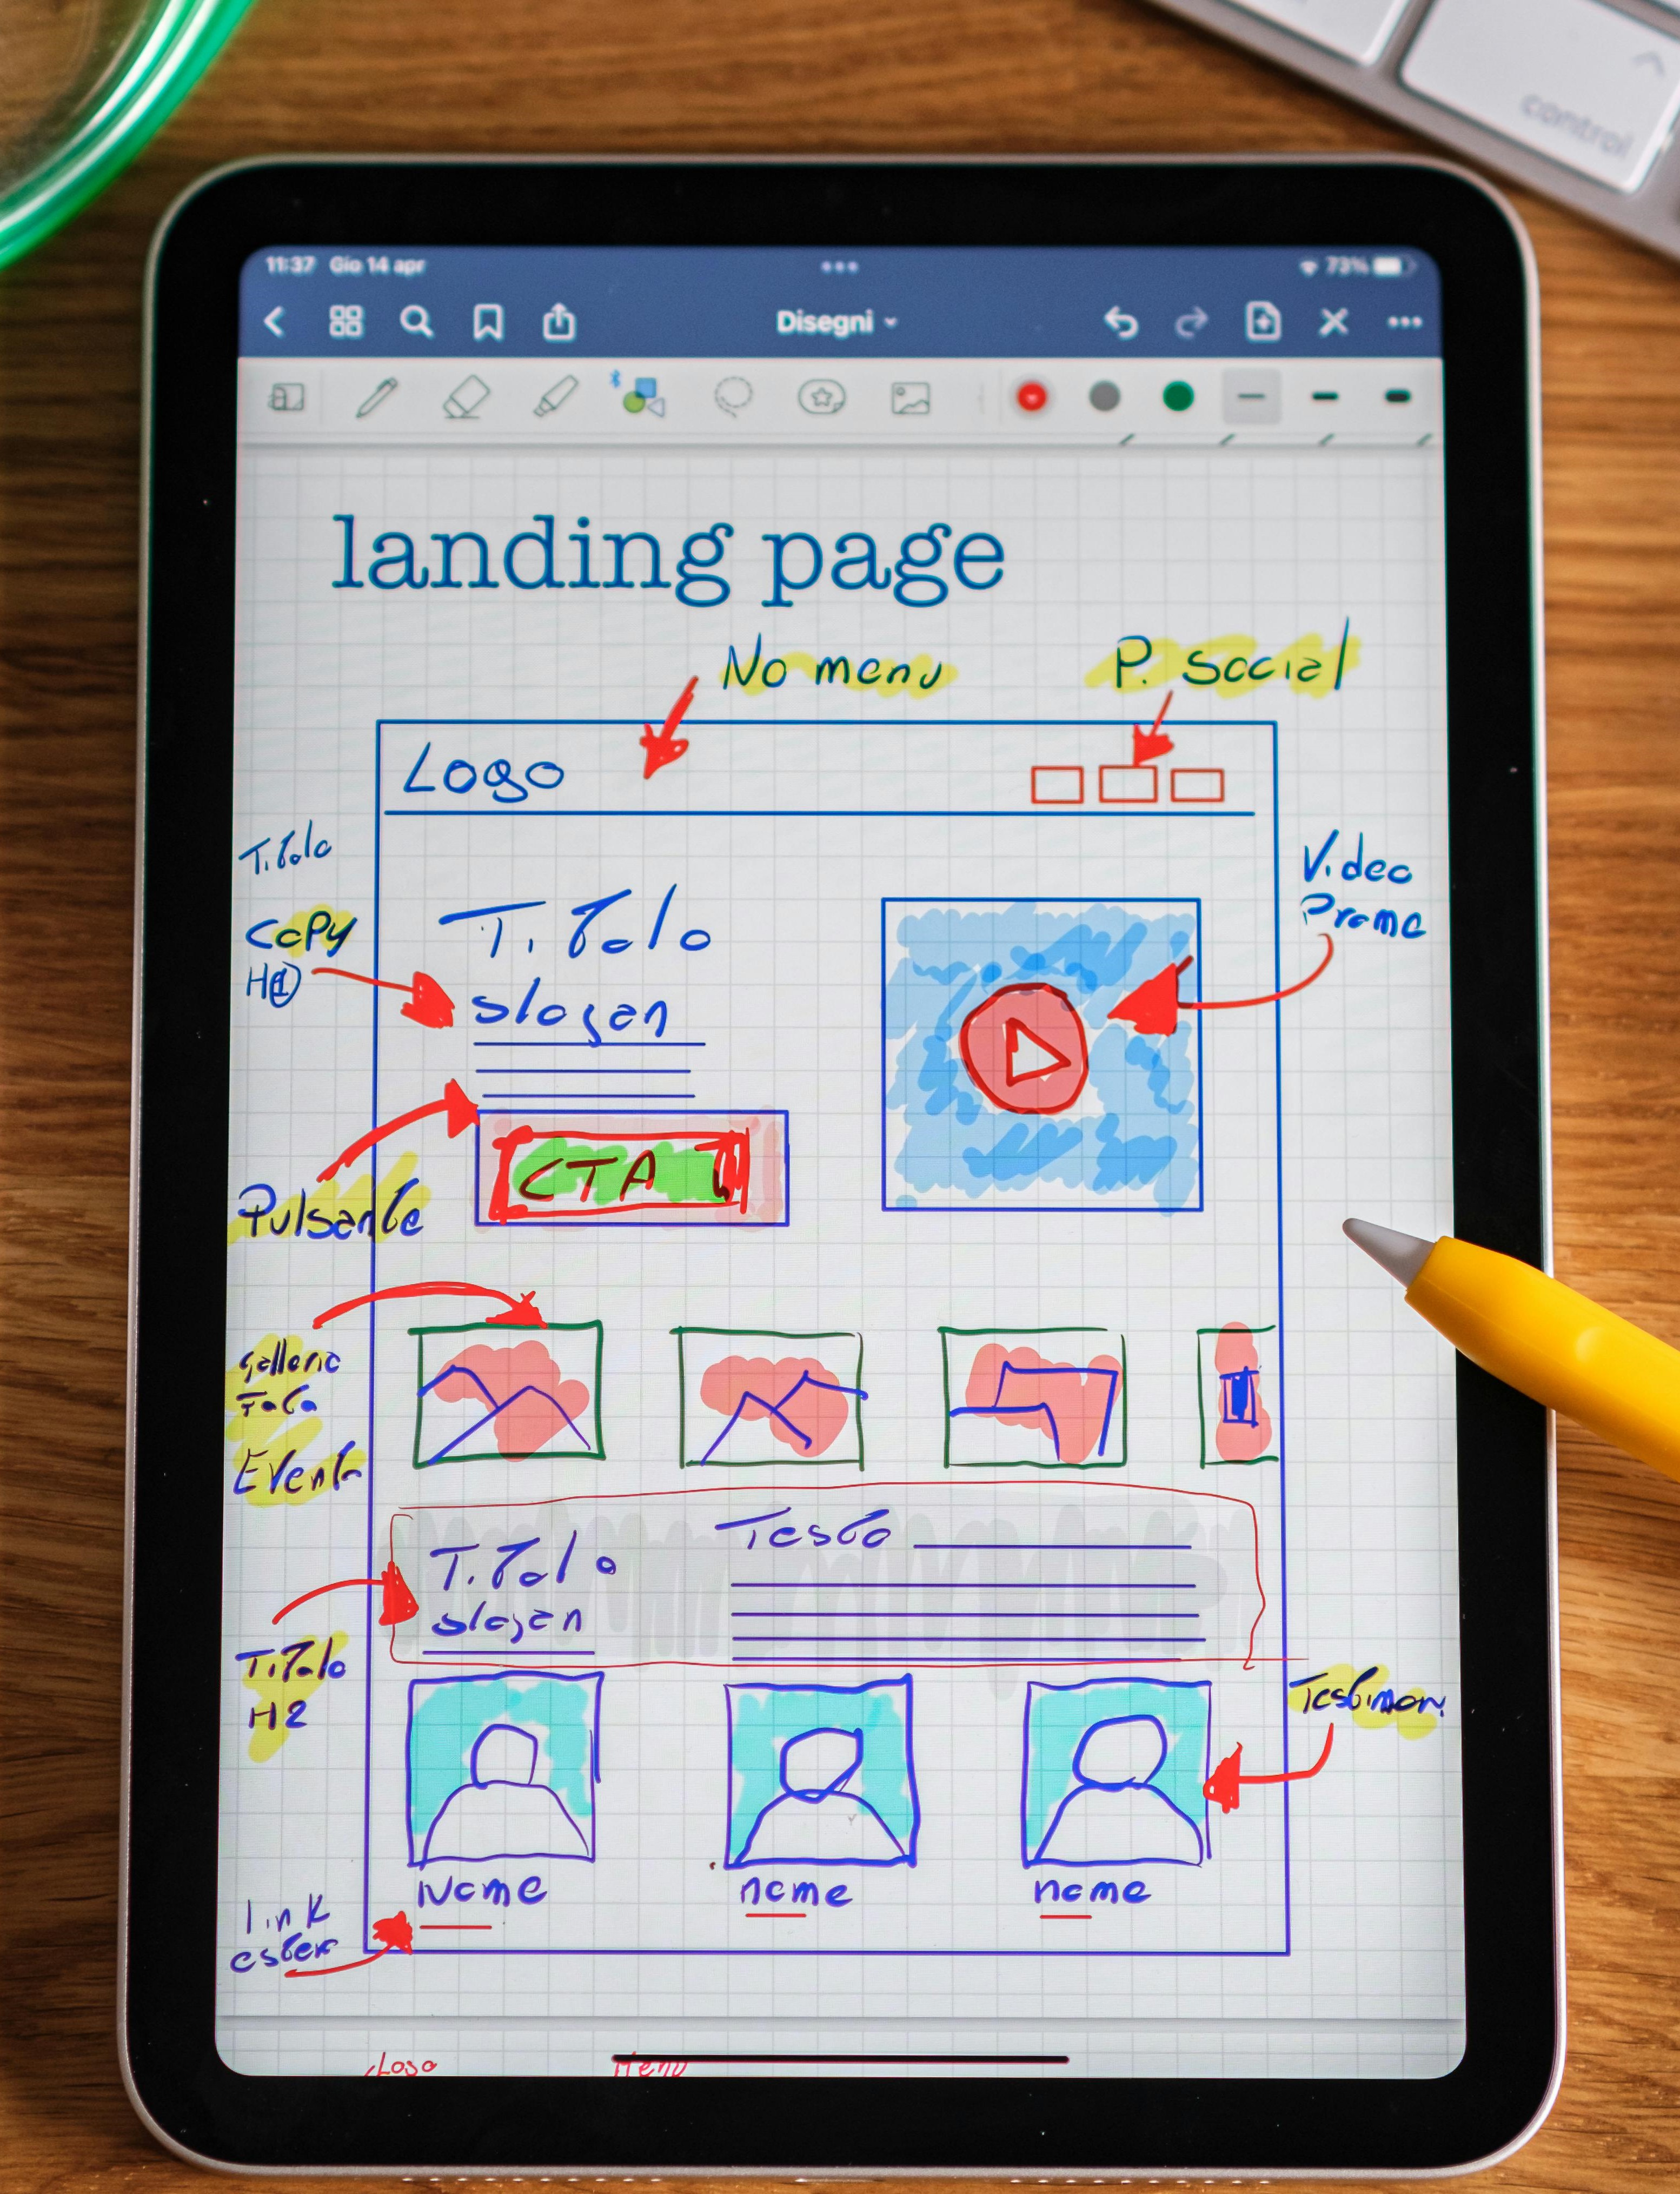 control
11:37 Gio 14 apr
73%
Disegni
landing page
No menu
P. Social
Logo
Titolo
Copy
H1
Titolo
slogan
Video
Promo
CTA
Pulsante
galleria
Foto
Evento
Titolo
slogan
Testo
Titolo
H2
Testimoni
Name
name
name
link
ester
Logo
Menu